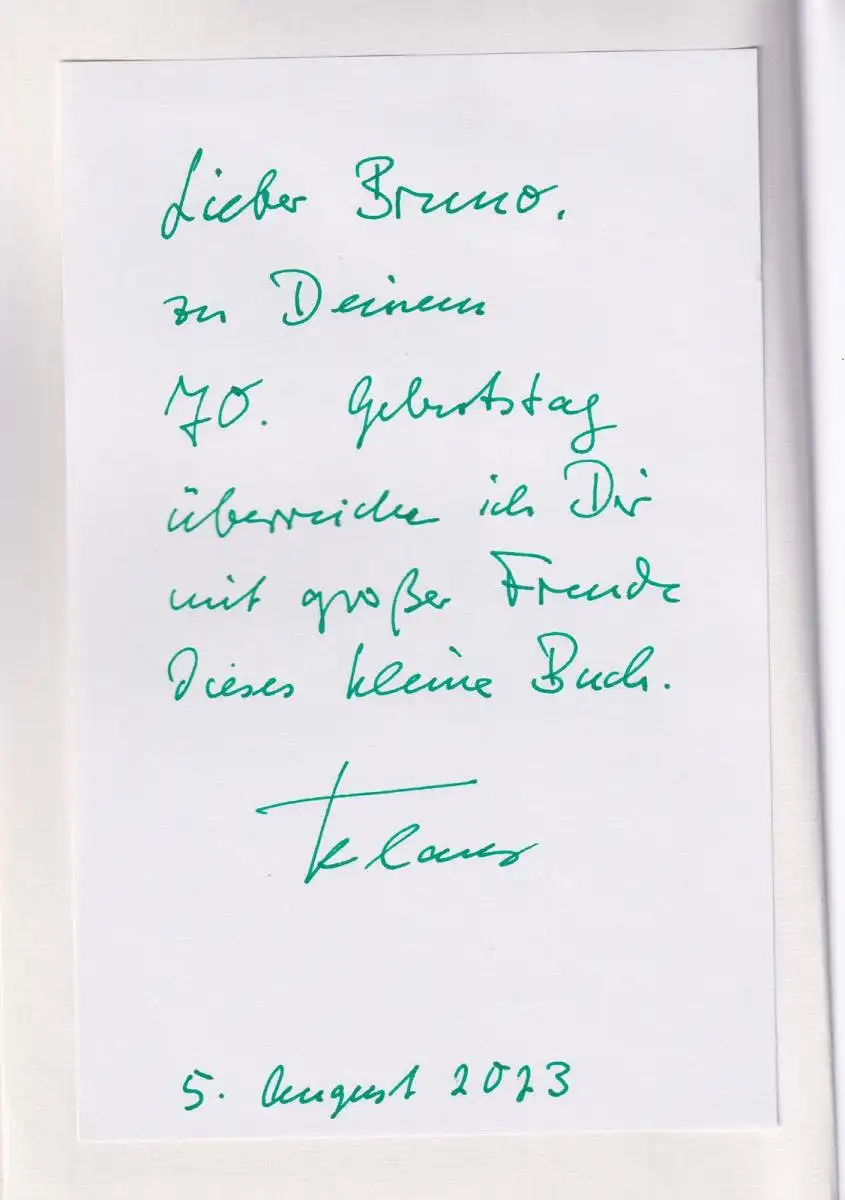 Lieber Bruno,
zu Deinem
70. Geburtstag
überreiche ich Dir
mit großer Freude
dieses kleine Buch.
Klaus
5. August 2023